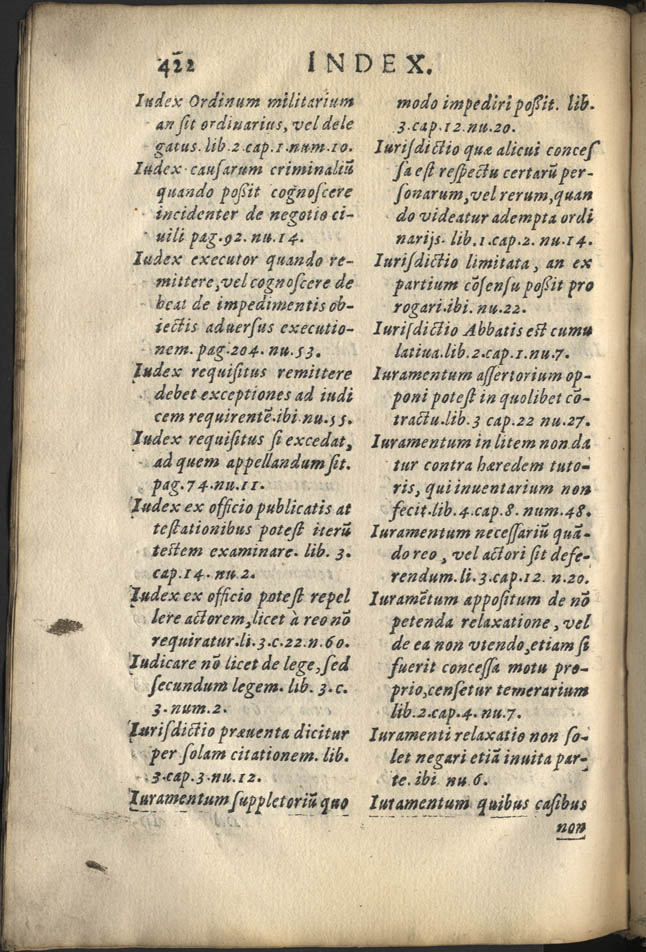 422 INDEX.
Iudex Ordinum militarium
an ſit ordinarius, vel dele
gatus. lib. 2. cap. 1. num. 10.
Iudex causarum criminaliū
quando poßit cognoſcere
incidenter de negotio ci-
uili pag. 92. nu. 14.
Iudex executor quando re-
mittere, vel cognoſcere de
beat de impedimentis ob-
iectis aduerſus executio-
nem. pag. 204. nu. 53.
Iudex requiſitus remittere
debet exceptiones ad iudi
cem requirentē. ibi nu. 55.
Iudex requiſitus ſi excedat,
ad quem appellandum ſit.
pag. 74. nu. 11.
Iudex ex officio publicatis at
teſtationibus poteſt iterū
teſtem examinare. lib. 3.
cap. 14. nu. 2.
Iudex ex officio poteſt repel
lere actorem, licet à reo nō
requiratur. li. 3. c. 22. n. 60.
Iudicare nō licet de lege, ſed
ſecundum legem. lib. 3. c.
3. num. 2.
Iuriſdictio præuenta dicitur
per ſolam citationem. lib.
3. cap. 3. nu. 12.
Iuramentum ſuppletoriū quo
modo impediri poßit. lib.
3. cap. 12. nu. 20.
Iuriſdictio quæ alicui conceſ
ſa eſt reſpectu certarū per-
ſonarum, vel rerum, quan
do videatur adempta ordi
narijs. lib. 1. cap. 2. nu. 14.
Iuriſdictio limitata, an ex
partium cōſenſu poßit pro
rogari. ibi. nu. 22.
Iuriſdictio Abbatis eſt cumu
latiua. lib. 2. cap. 1. nu. 7.
Iuramentum aſſertorium op-
poni poteſt in quolibet cō-
tractu. lib. 3 cap. 22 nu. 27.
Iuramentum in litem non da
tur contra hæredem tuto-
ris, qui inuentarium non
fecit. lib. 4. cap. 8. num. 48.
Iuramentum neceſſariū quā-
do reo, vel actori ſit defe-
rendum. li. 3. cap. 12. n. 20.
Iuramētum appoſitum de nō
petenda relaxatione, vel
de ea non vtendo, etiam ſi
fuerit conceſſa motu pro-
prio, cenſetur temerarium
lib. 2. cap. 4. nu. 7.
Iuramenti relaxatio non ſo-
let negari etiā inuita par-
te. ibi nu 6.
Iuramentum quibus caſibus
non